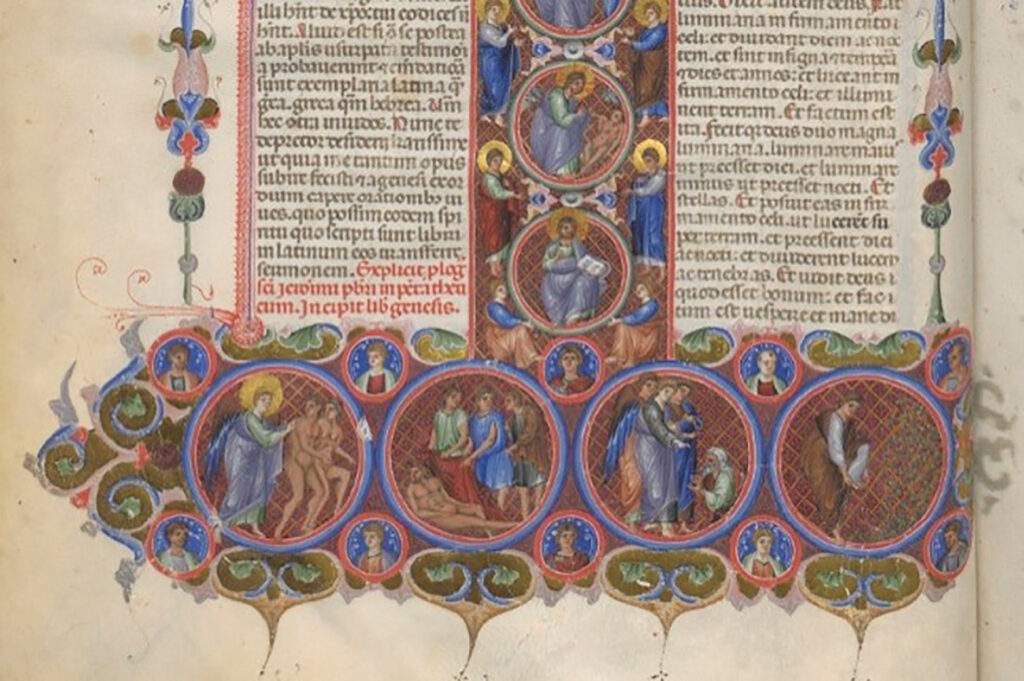 illi hn̄t de xp̄o tui codices n̄
hn̄t. Aliud est si q̄ se postea
ab aplis usurpata testimoī
a probauerunt ⁊ em̄datioā
sunt exemplaria latina q̄
greca. greca qm̄ hebrea.
hec cōtra inuidos. Nunc te
deprecor desideri karissime
ut quia me tantum opus
subire fecisti ⁊ a genesi exor
dium capere orationibꝫ iu
ues. quo possim eodem spi
ritu quo scripti sunt libri
in latinum eos transferre
sermonem. Explicit plog
sci jeronimi pbri in pēta theu
cum. Incipit lib genesis.
luminaria in firmamento
celi: et diuidant diem ac noc
tem. et sint in signa ⁊ tempora
⁊ dies et annos: et luceant in
firmamento celi: et illumi
nent terram. Et factum est
ita. fecitqꝫ deus duo magna
luminaria. luminare maius
ut preesset diei. et luminare
minus ut preesset nocti. Et
stellas. Et posuit eas in fir
mamento celi. ut lucerent su
per terram. et preessent diei
ac nocti: et diuiderent lucem
ac tenebras. Et uidit deus
quod esset bonum: et fac
tum est uespere et mane di